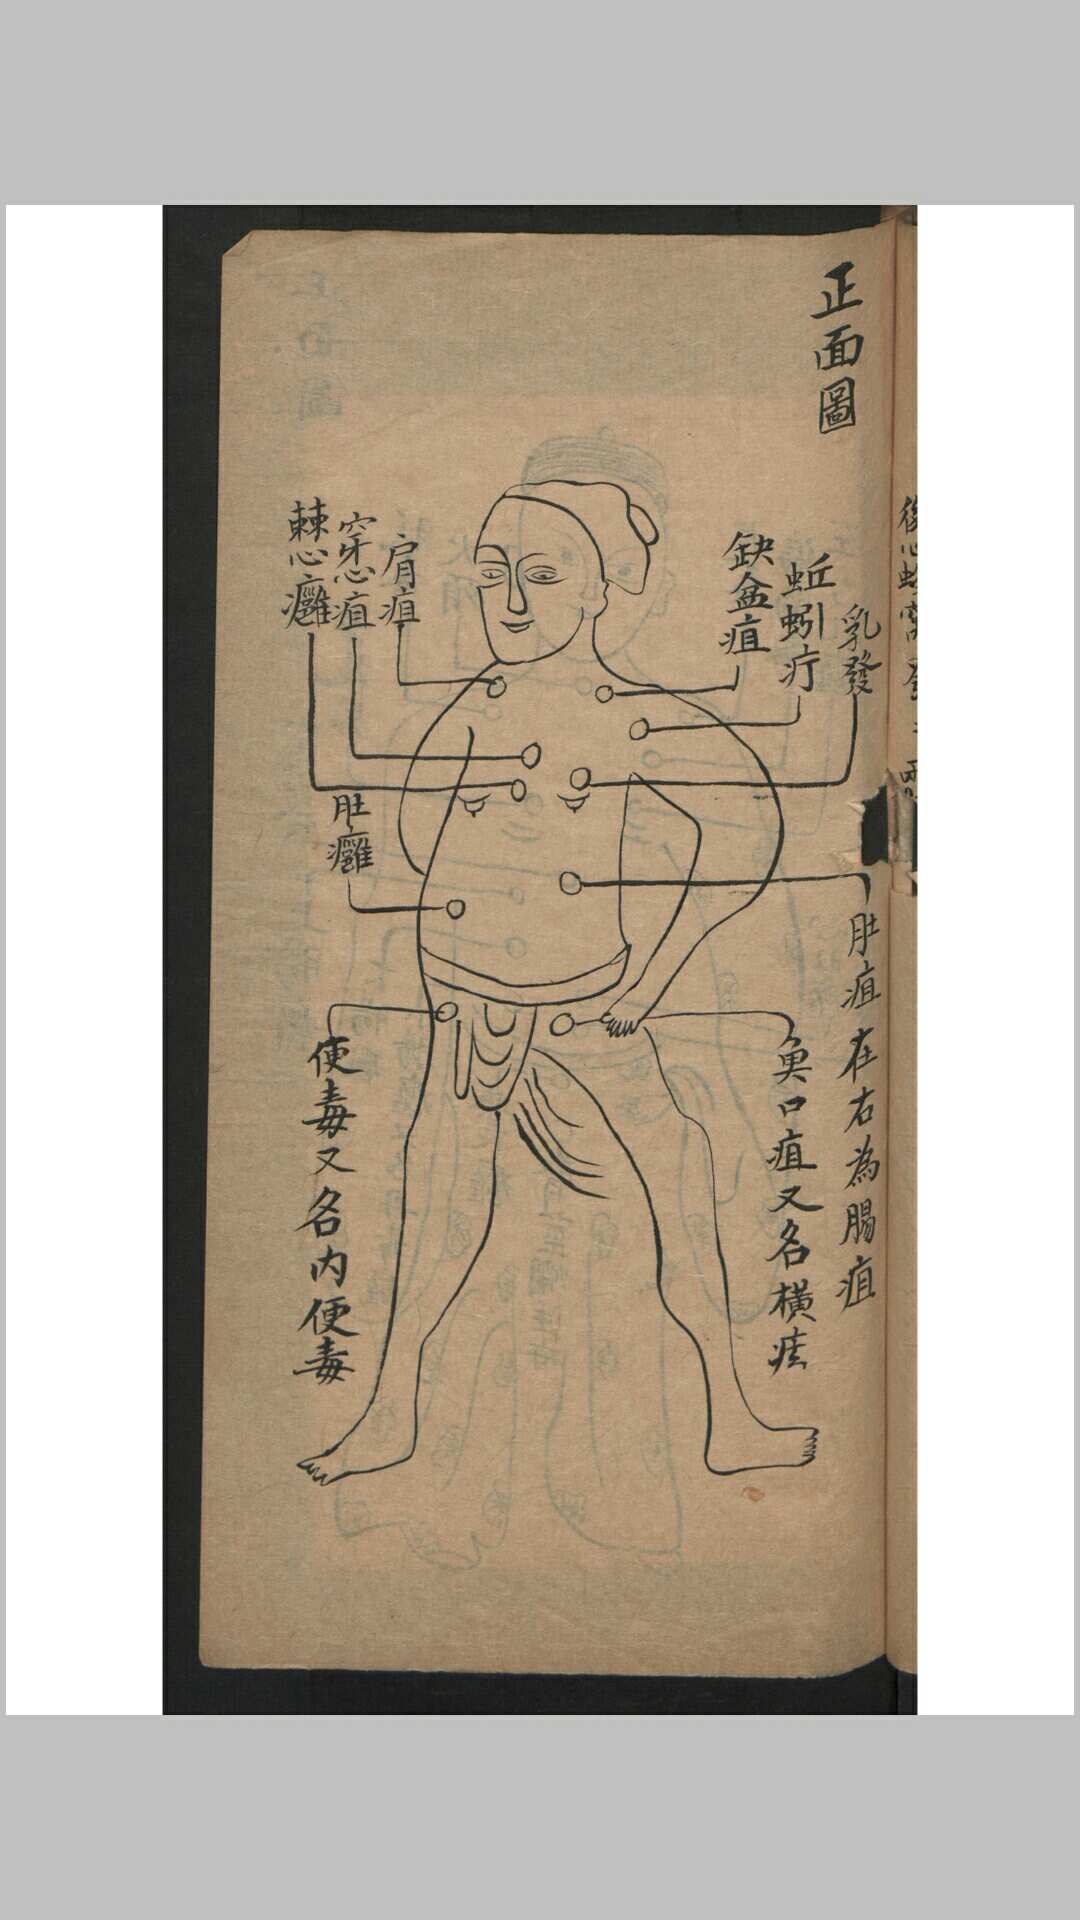 正面圖
乳發
蚯蚓疔
缺盆疽
肩疽
穿心疽
棘心癰
肚癰
肚疽在右為腸疽
奥口疽又名橫痃
便毒又名內便毒